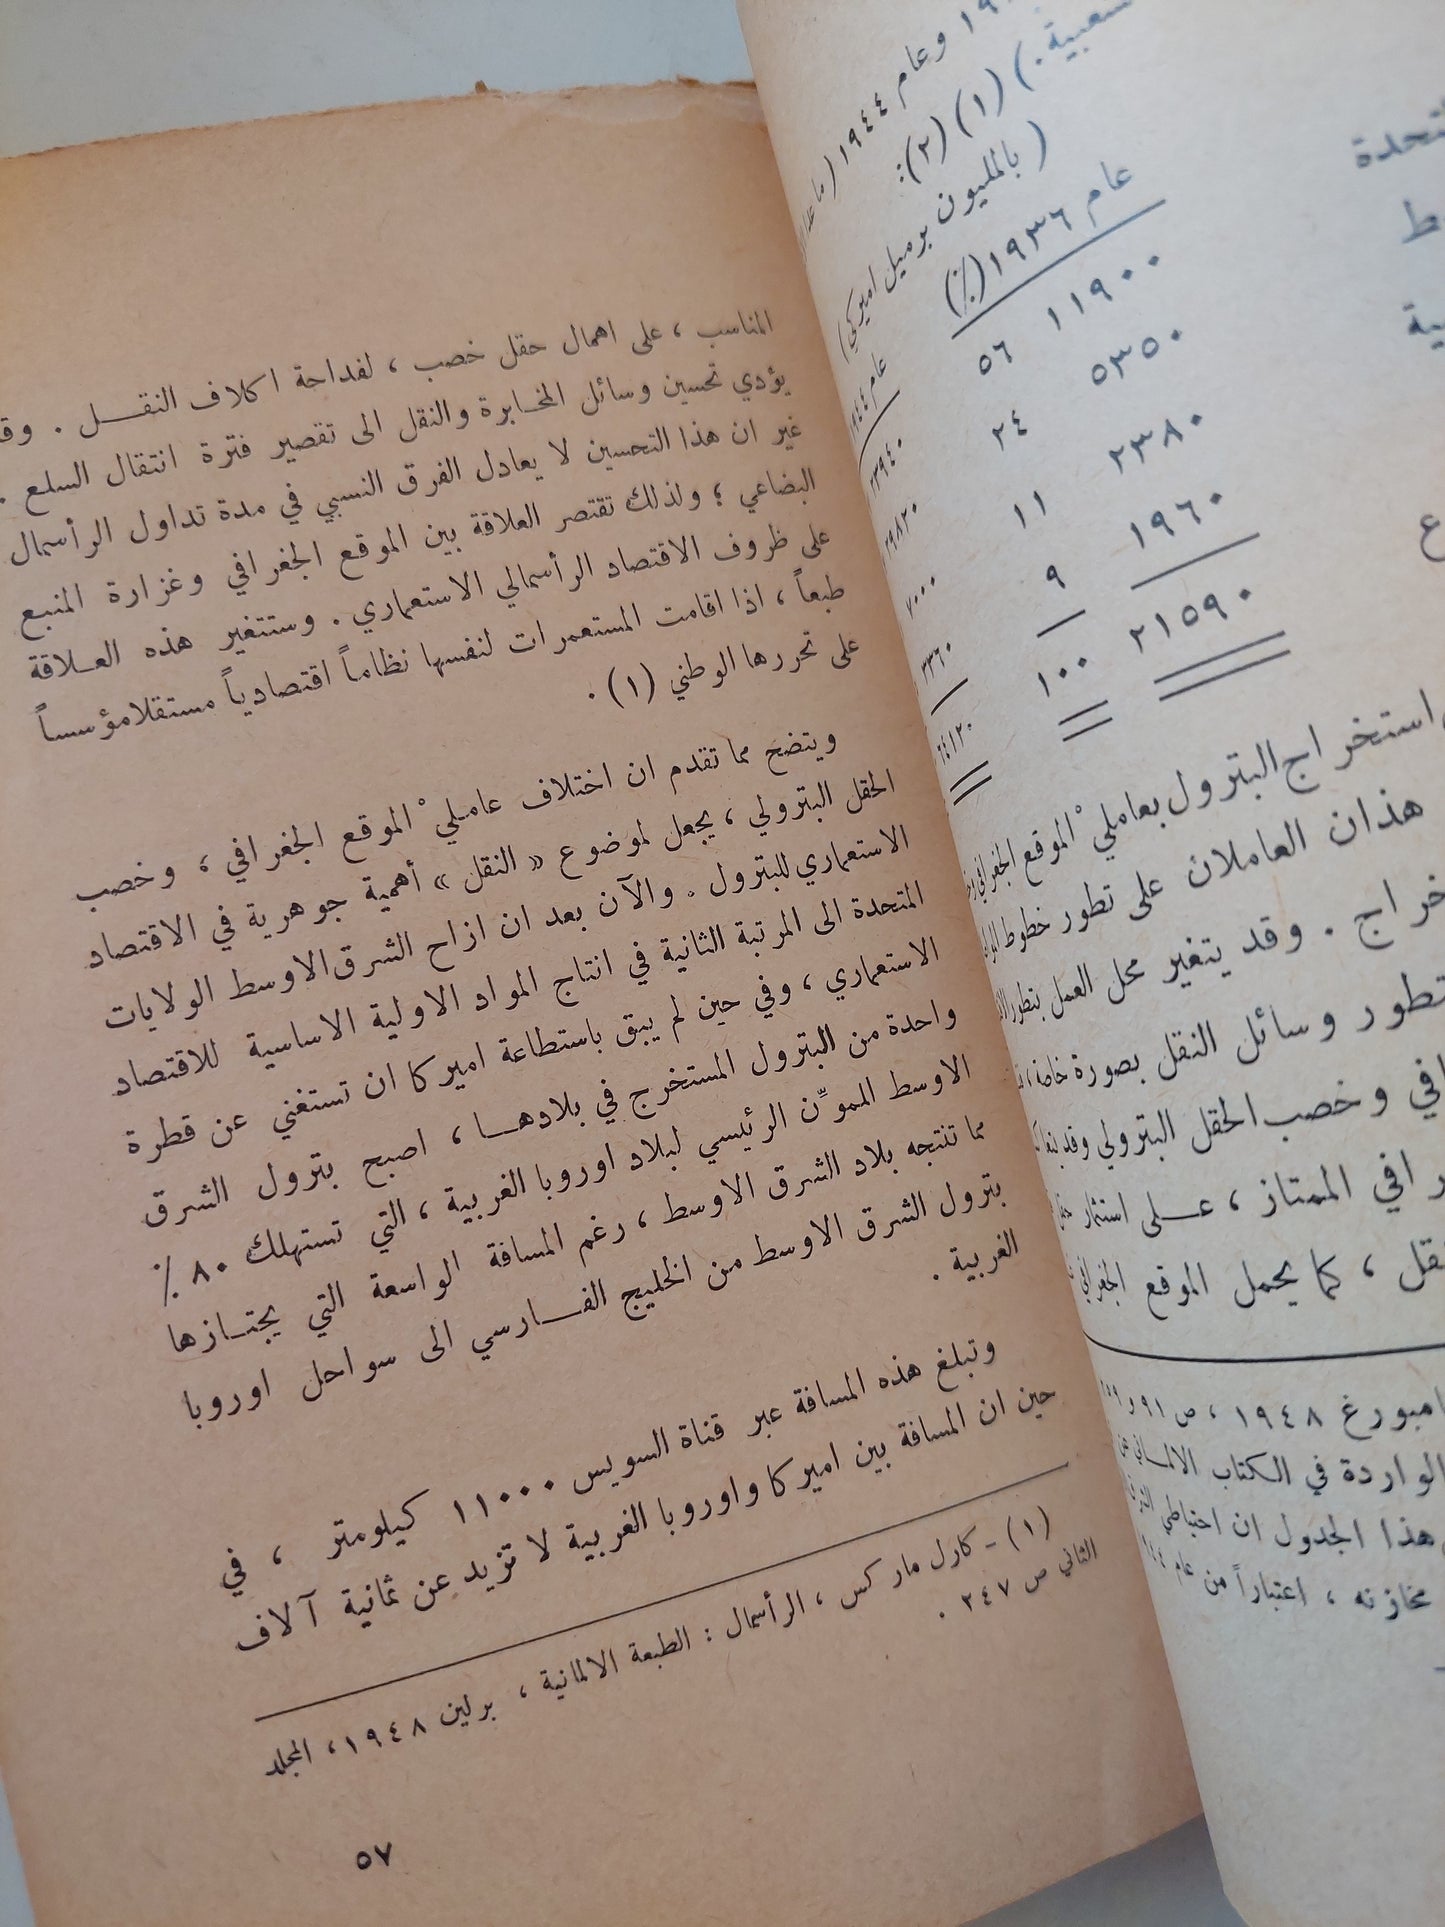 ١٩ وعام ١٩٤٤ (ما عدا
شعبية.) (١) (٢):
(بالمليون برميل اميركي)
عام ١٩٣٦ (٪) عام ١٩٤٤
١١٩٠٠ ٥٦ ٢٣٩٤٠
٥٣٥٠ ٢٤ ٢٩٨٢٠
٢٣٨٠ ١١ ٧٠٠٠
١٩٦٠ ٩ ٣٣٦٠
٢١٥٩٠ ١٠٠ ٦٤١٢٠
تحدة
ط
ية
ع
استخراج البترول بعاملي الموقع الجغرافي
هذان العاملان على تطور خطوط
خراج . وقد يتغير محل العمل بتطور
تطور وسائل النقل بصورة خاصة ،
افي وخصب الحقل البترولي وقد
رافي الممتاز ، عـلى استثمار
نقل ، كما يحمل الموقع الجغرافي
امبورغ ١٩٤٨ ، ص ٩١ و
الواردة في الكتاب الالماني عن
هذا الجدول ان احتياطي
مخازنه ، اعتباراً من عام
المناسب ، على اهمال حقل خصب ، لفداحة اكلاف النقـل . وقـ
يؤدي تحسين وسائل المخابرة والنقل الى تقصير فترة انتقال السلع .
غير ان هذا التحسين لا يعادل الفرق النسبي في مدة تداول الرأسمال
البضاعي ؛ ولذلك تقتصر العلاقة بين الموقع الجغرافي وغزارة المنبع
على ظروف الاقتصاد الرأسمالي الاستعماري . وستتغير هذه العـلاقة
طبعاً ، اذا اقامت المستعمرات لنفسها نظاماً اقتصادياً مستقلا مؤسساً
على تحررها الوطني (١) .
ويتضح مما تقدم ان اختلاف عاملي الموقع الجغرافي ، وخصب
الحقل البترولي ، يجعل لموضوع « النقل » أهمية جوهرية في الاقتصاد
الاستعماري للبترول . والآن بعد ان ازاح الشرق الاوسط الولايات
المتحدة الى المرتبة الثانية في انتاج المواد الاولية الاساسية للاقتصاد
الاستعماري ، وفي حين لم يبق باستطاعة اميركا ان تستغني عن قطرة
واحدة من البترول المستخرج في بلادهـا ، اصبح بترول الشرق
الاوسط المموِّن الرئيسي لبلاد اوروبا الغربية ، التي تستهلك ٨٠ ٪
مما تنتجه بلاد الشرق الاوسط ، رغم المسافة الواسعة التي يجتـازها
بترول الشرق الاوسط من الخليج الفـارسي الى سواحل اوروبا
الغربية .
وتبلغ هذه المسافة عبر قناة السويس ١١٠٠٠ كيلومتر ، في
حين ان المسافة بين اميركا واوروبا الغربية لا تزيد عن ثمانية آلاف
(١) - كارل ماركس ، الرأسمال : الطبعة الالمانية ، برلين ١٩٤٨ ، المجلد
الثاني ص ٢٤٧ .
٥٧